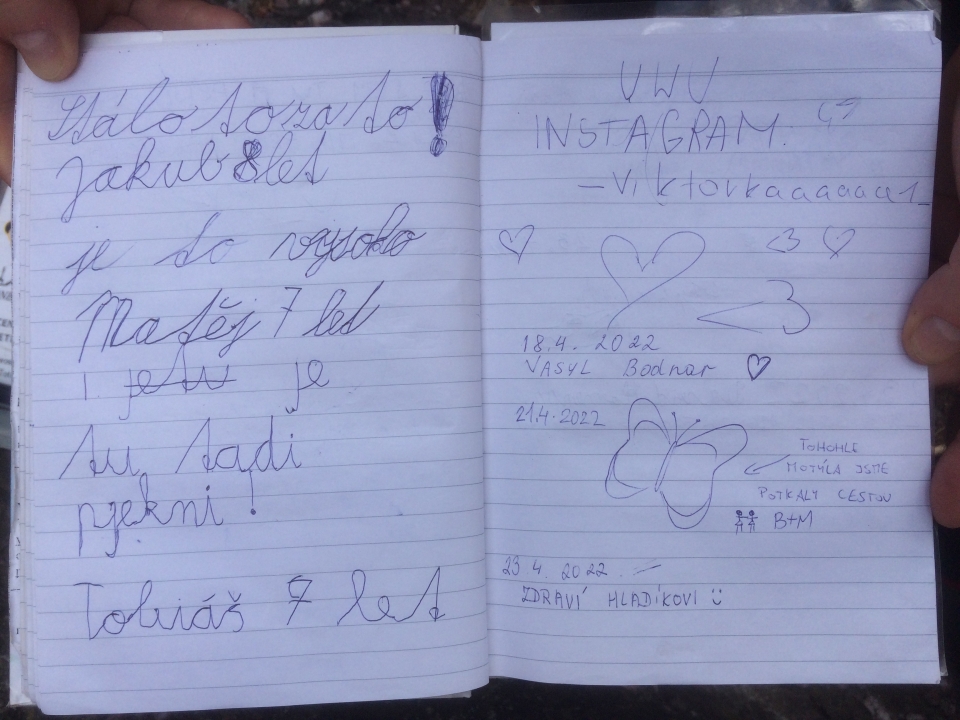 Stálo to za to!
Jakub 8 let
je to vysoko
Matěj 7 let
jetu je
tu tadi
pjekni!
Tobiáš 7 let
UWU
INSTAGRAM.
-Viktorkaaaaaa1_
<3
<3
18.4. 2022
VASYL Bodnar
21.4.2022
TOHOHLE
MOTÝLA JSME
POTKALY CESTOU
B+M
23 4. 2022
ZDRAVÍ HLADÍKOVI